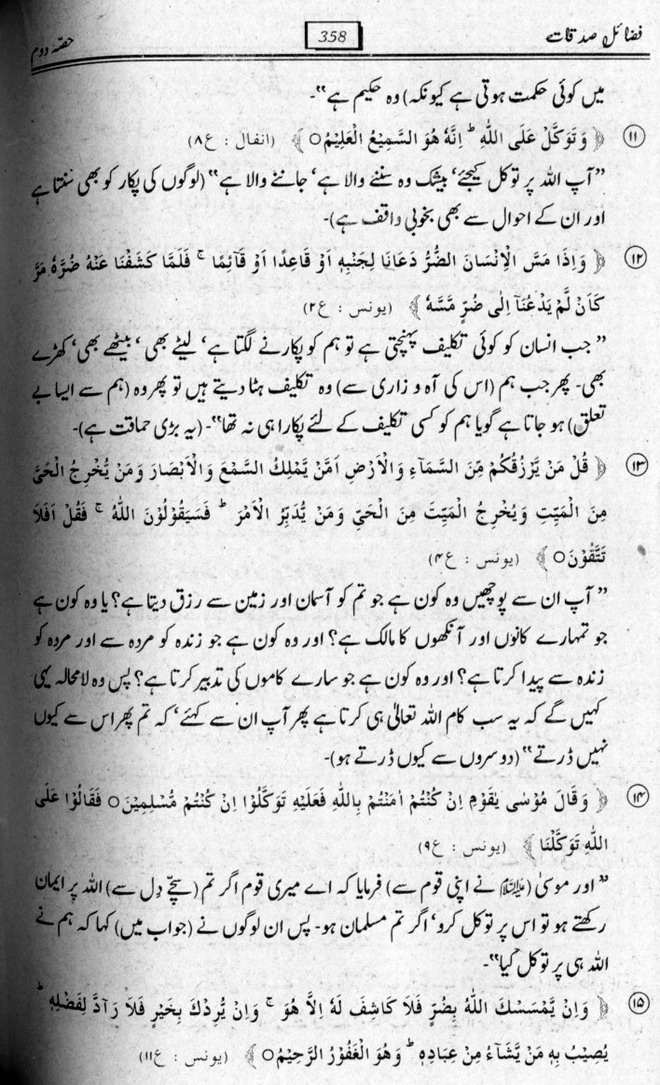 فضائل صدقات 358 حصّہ دوم
میں کوئی حکمت ہوتی ہے کیونکہ) وہ حکیم ہے“۔
⑪ ﴿ وَتَوَكَّلْ عَلَى اللّٰهِ ؕ اِنَّهٗ هُوَ السَّمِيْعُ الْعَلِيْمُ○ ﴾ (انفال : ع۸)
”آپ اللہ پر توکل کیجئے‘ بیشک وہ سننے والا ہے‘ جاننے والا ہے“ (لوگوں کی پکار کو بھی سنتا ہے
اور ان کے احوال سے بھی بخوبی واقف ہے)۔
⑫ ﴿ وَاِذَا مَسَّ الْاِنْسَانَ الضُّرُّ دَعَانَا لِجَنْۢبِهٖٓ اَوْ قَاعِدًا اَوْ قَآئِمًا ۚ فَلَمَّا كَشَفْنَا عَنْهُ ضُرَّهٗ مَرَّ
كَاَنْ لَّمْ يَدْعُنَآ اِلٰى ضُرٍّ مَّسَّهٗ ﴾ (یونس : ع۲)
” جب انسان کو کوئی تکلیف پہنچتی ہے تو ہم کو پکارنے لگتا ہے‘ لیٹے بھی‘ بیٹھے بھی‘ کھڑے
بھی۔ پھر جب ہم (اس کی آہ و زاری سے) وہ تکلیف ہٹا دیتے ہیں تو پھر وہ (ہم سے ایسا بے
تعلق) ہو جاتا ہے گویا ہم کو کسی تکلیف کے لئے پکارا ہی نہ تھا“۔ (یہ بڑی حماقت ہے)۔
⑬ ﴿ قُلْ مَنْ يَّرْزُقُكُمْ مِّنَ السَّمَآءِ وَالْاَرْضِ اَمَّنْ يَّمْلِكُ السَّمْعَ وَالْاَبْصَارَ وَمَنْ يُّخْرِجُ الْحَىَّ
مِنَ الْمَيِّتِ وَيُخْرِجُ الْمَيِّتَ مِنَ الْحَيِّ وَمَنْ يُّدَبِّرُ الْاَمْرَ ؕ فَسَيَقُوْلُوْنَ اللّٰهُ ۚ فَقُلْ اَفَلَا
تَتَّقُوْنَ○ ﴾ (یونس : ع۴)
” آپ ان سے پوچھیں وہ کون ہے جو تم کو آسمان اور زمین سے رزق دیتا ہے؟ یا وہ کون ہے
جو تمہارے کانوں اور آنکھوں کا مالک ہے؟ اور وہ کون ہے جو زندہ کو مردہ سے اور مردہ کو
زندہ سے پیدا کرتا ہے؟ اور وہ کون ہے جو سارے کاموں کی تدبیر کرتا ہے؟ پس وہ لامحالہ یہی
کہیں گے کہ یہ سب کام اللہ تعالیٰ ہی کرتا ہے پھر آپ ان سے کہئے‘ کہ تم پھر اس سے کیوں
نہیں ڈرتے“ (دوسروں سے کیوں ڈرتے ہو)۔
⑭ ﴿ وَقَالَ مُوْسٰى يٰقَوْمِ اِنْ كُنْتُمْ اٰمَنْتُمْ بِاللّٰهِ فَعَلَيْهِ تَوَكَّلُوْٓا اِنْ كُنْتُمْ مُّسْلِمِيْنَ○ فَقَالُوْا عَلَى
اللّٰهِ تَوَكَّلْنَا ﴾ (یونس : ع۹)
” اور موسیٰ (علیہ السلام نے اپنی قوم سے) فرمایا کہ اے میری قوم اگر تم (سچّے دِل سے) اللہ پر ایمان
رکھتے ہو تو اس پر توکل کرو‘ اگر تم مسلمان ہو۔ پس ان لوگوں نے (جواب میں) کہا کہ ہم نے
اللہ ہی پر توکل کیا“۔
⑮ ﴿ وَاِنْ يَّمْسَسْكَ اللّٰهُ بِضُرٍّ فَلَا كَاشِفَ لَهٗٓ اِلَّا هُوَ ۚ وَاِنْ يُّرِدْكَ بِخَيْرٍ فَلَا رَآدَّ لِفَضْلِهٖ ؕ
يُصِيْبُ بِهٖ مَنْ يَّشَآءُ مِنْ عِبَادِهٖ ؕ وَهُوَ الْغَفُوْرُ الرَّحِيْمُ○ ﴾ (یونس : ع۱۱)